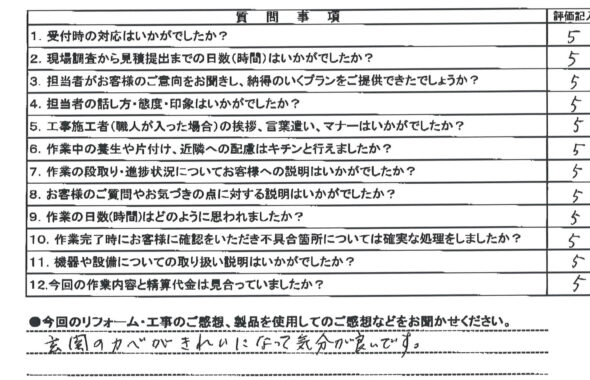 質問事項 評価記入
1. 受付時の対応はいかがでしたか? 5
2. 現場調査から見積提出までの日数(時間)はいかがでしたか? 5
3. 担当者がお客様のご意向をお聞きし、納得のいくプランをご提供できたでしょうか? 5
4. 担当者の話し方・態度・印象はいかがでしたか? 5
5. 工事施工者(職人が入った場合)の挨拶、言葉遣い、マナーはいかがでしたか? 5
6. 作業中の養生や片付け、近隣への配慮はキチンと行えましたか? 5
7. 作業の段取り・進捗状況についてお客様への説明はいかがでしたか? 5
8. お客様のご質問やお気づきの点に対する説明はいかがでしたか? 5
9. 作業の日数(時間)はどのように思われましたか? 5
10. 作業完了時にお客様に確認をいただき不具合箇所については確実な処理をしましたか? 5
11. 機器や設備についての取り扱い説明はいかがでしたか? 5
12.今回の作業内容と精算代金は見合っていましたか? 5
●今回のリフォーム・工事のご感想、製品を使用してのご感想などをお聞かせください。
玄関のカベがきれいになって気分が良いです。